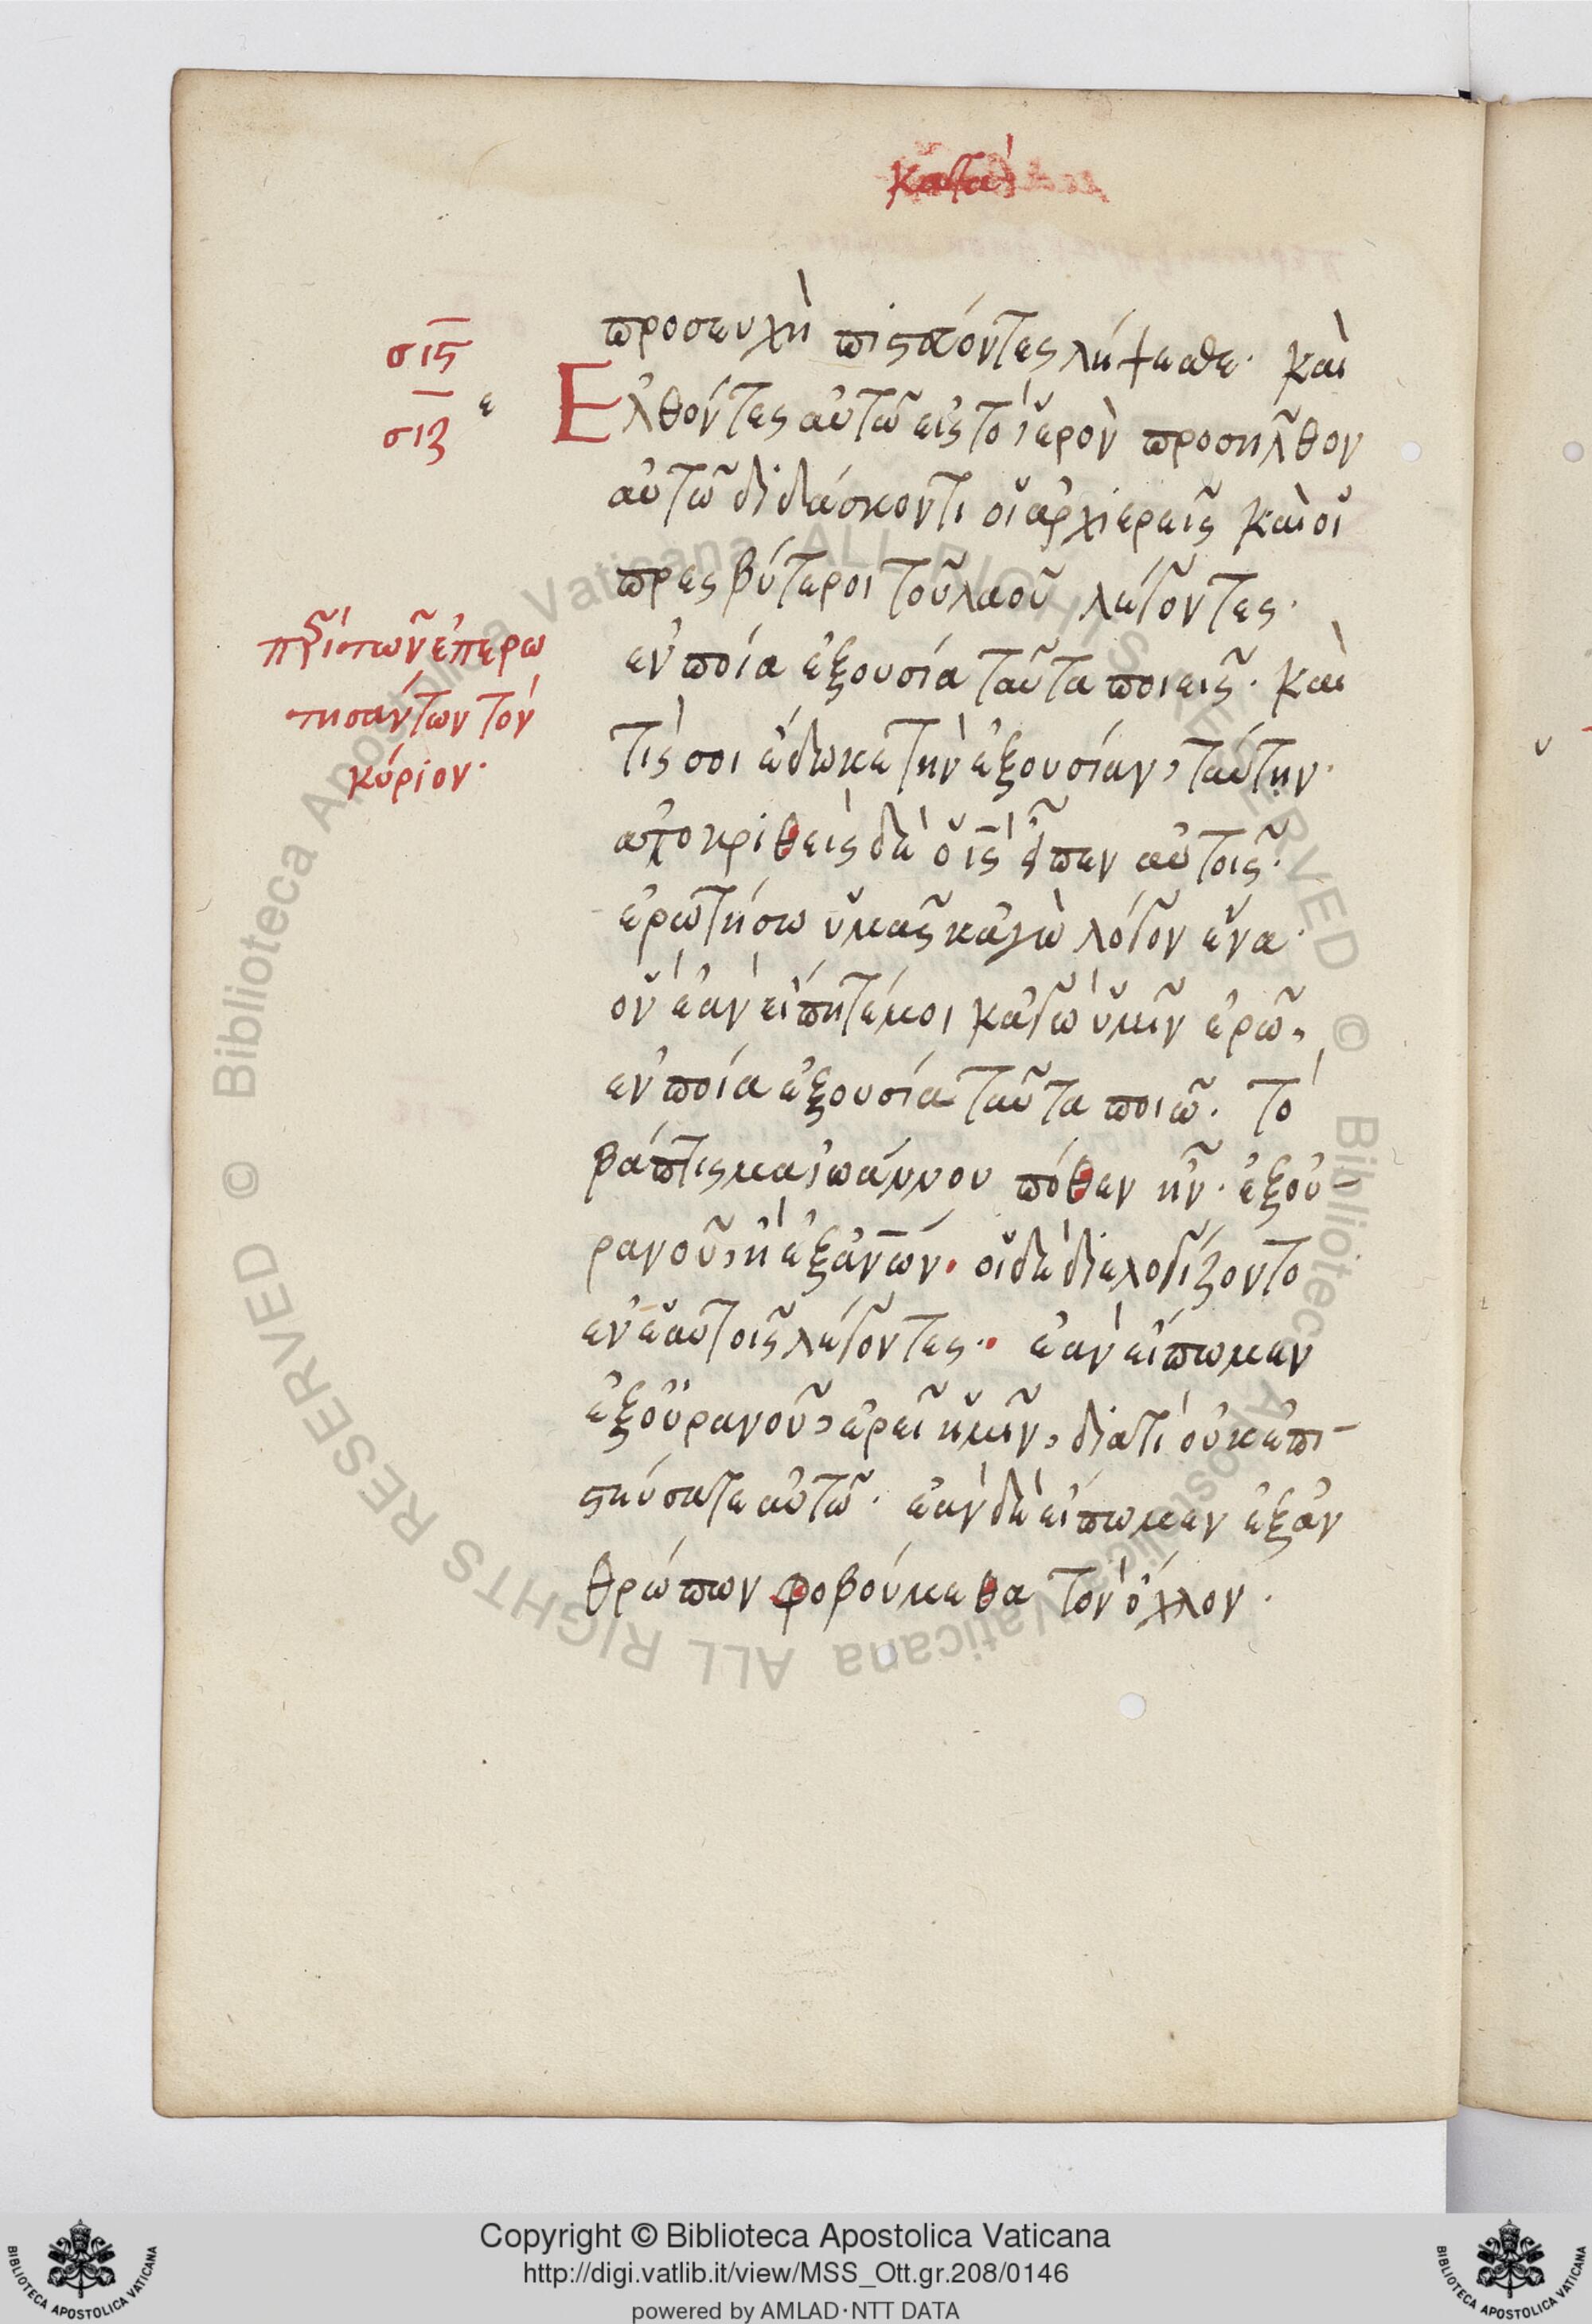 κατὰ
προσευχὴ πιστεύοντες λήψεσθε· καὶ
σιϛ
Ἐλθόντες αὐτῶ εἰς τὸ ἱερὸν προσῆλθον
σιζ ε
αὐτῶ διδάσκοντι οἱ ἀρχιερεῖς καὶ οἱ
πρεσβύτεροι τοῦ λαοῦ λέγοντες·
ἐπερω
τησάντων τὸν
κύριον·
ἐν ποία ἐξουσία ταῦτα ποιεῖς· καὶ
τίς σοι ἔδωκε τὴν ἐξουσίαν, ταύτην·
ἀποκριθεὶς δὲ ὁ ις εἶπεν αὐτοῖς·
ἐρωτήσω ὑμᾶς κἀγὼ λόγον ἕνα·
ὃν ἐὰν εἴπητέ μοι κἀγὼ ὑμῖν ἐρῶ,
ἐν ποία ἐξουσία ταῦτα ποιῶ· τὸ
βάπτισμα ἰωάννου πόθεν ἦν· ἐξ οὐ
ρανοῦ, ἢ ἐξ ἀνων· οἱ δὲ διελογίζοντο
ἐν ἑαυτοῖς λέγοντες· ἐὰν εἴπωμεν
ἐξ οὐρανοῦ, ἐρεῖ ἡμῖν, διατί οὐκ ἐπι-
στεύσατε αὐτῶ· ἐὰν δὲ εἴπωμεν ἐξ ἀν
θρώπων φοβούμεθα τὸν ὄχλον·
Copyright © Biblioteca Apostolica Vaticana
http://digi.vatlib.it/view/MSS_Ott.gr.208/0146
powered by AMLAD·NTT DATA
BIBLIOTECA APOSTOLICA VATICANA
BIBLIOTECA APOSTOLICA VATICANA
© Biblioteca Apostolica Vaticana ALL RIGHTS RESERVED
© Biblioteca Apostolica Vaticana ALL RIGHTS RESERVED